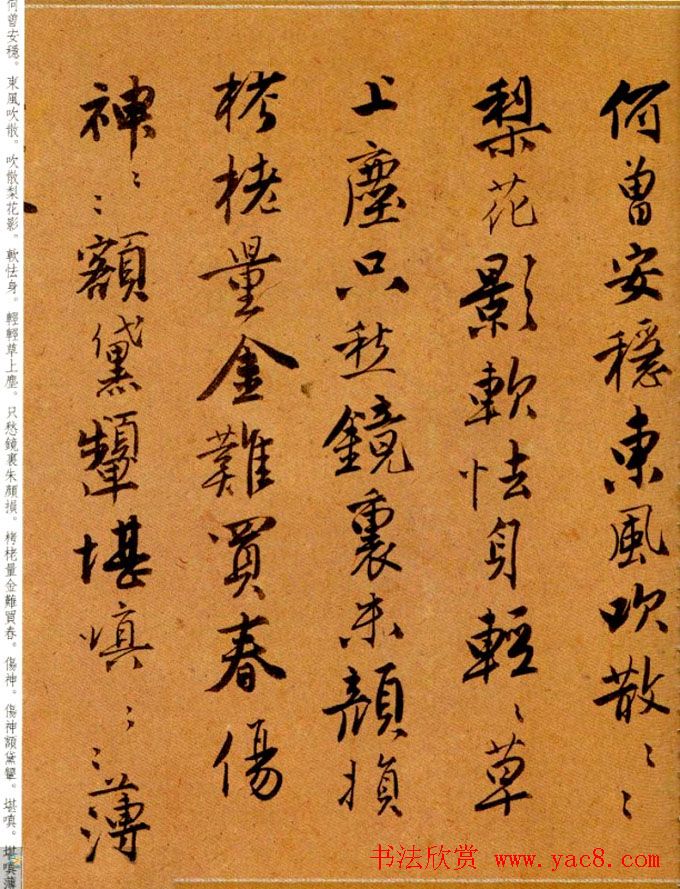 何曾安穩東風吹散〻〻
梨花影軟怯身輕〻草
上塵只愁鏡裏朱顏損
栲栳量金難買春傷
神〻〻額黛顰堪嗔〻〻薄
何曾安穩。東風吹散。吹散梨花影。軟怯身。輕輕草上塵。只愁鏡裏朱顏損。栲栳量金難買春。傷神。傷神額黛顰。堪嗔。堪嗔薄
书法欣赏 www.yac8.com